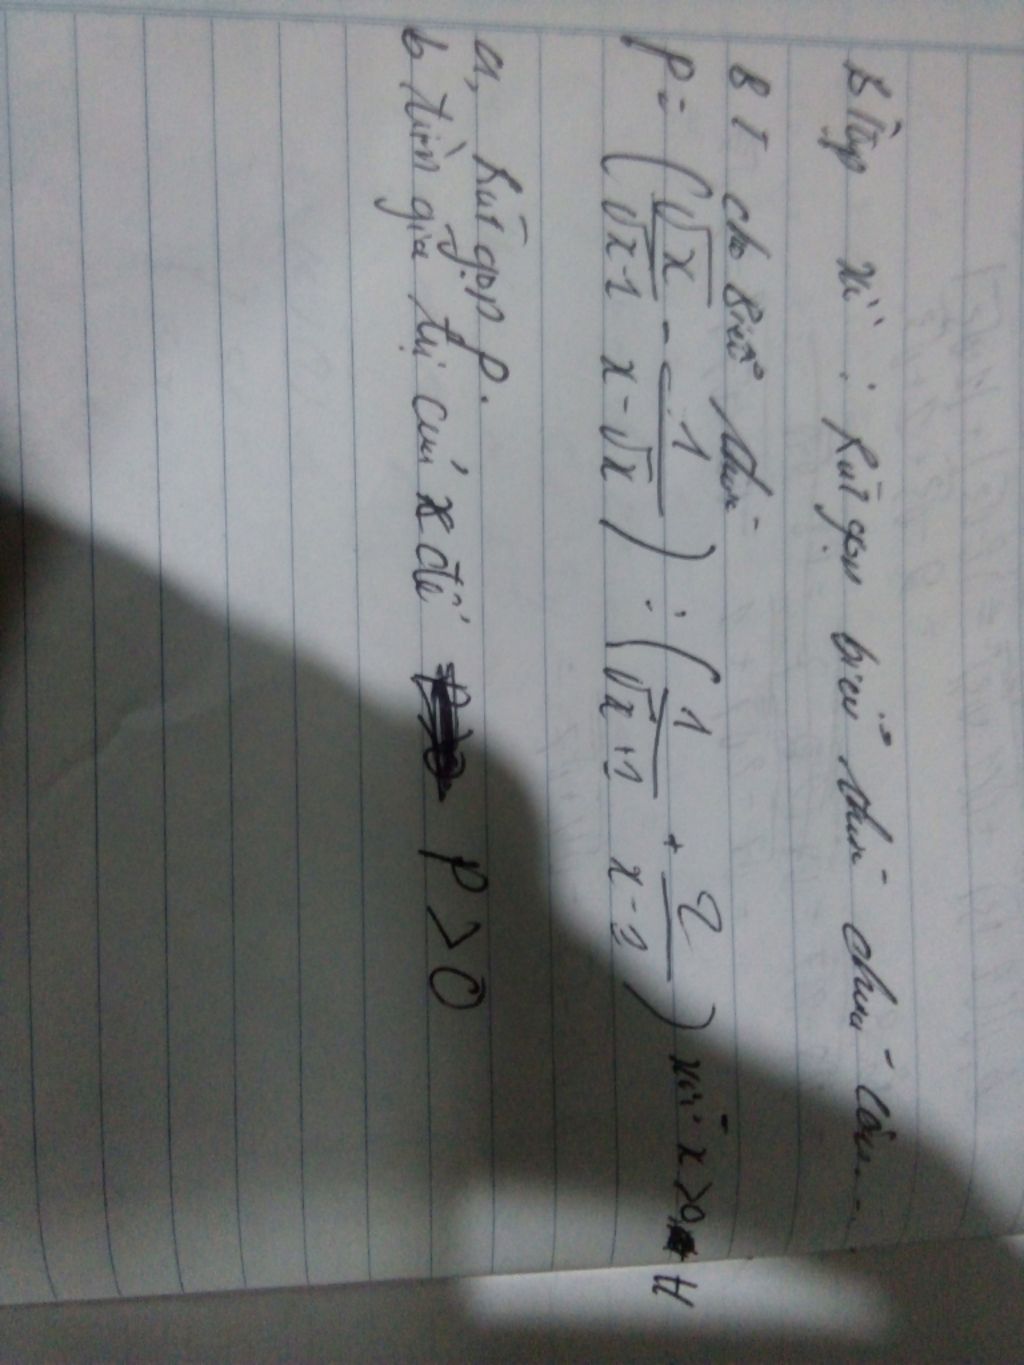 B Tập về : Rút gọn biểu thức chứa căn...
B 1 cho Biểu thức
P = (√x/√x-1 - 1/x-√x) : (1/√x+1 + 2/x-1) với x>0
a, Rút gọn P.
b tìm giá trị của x để P > 0